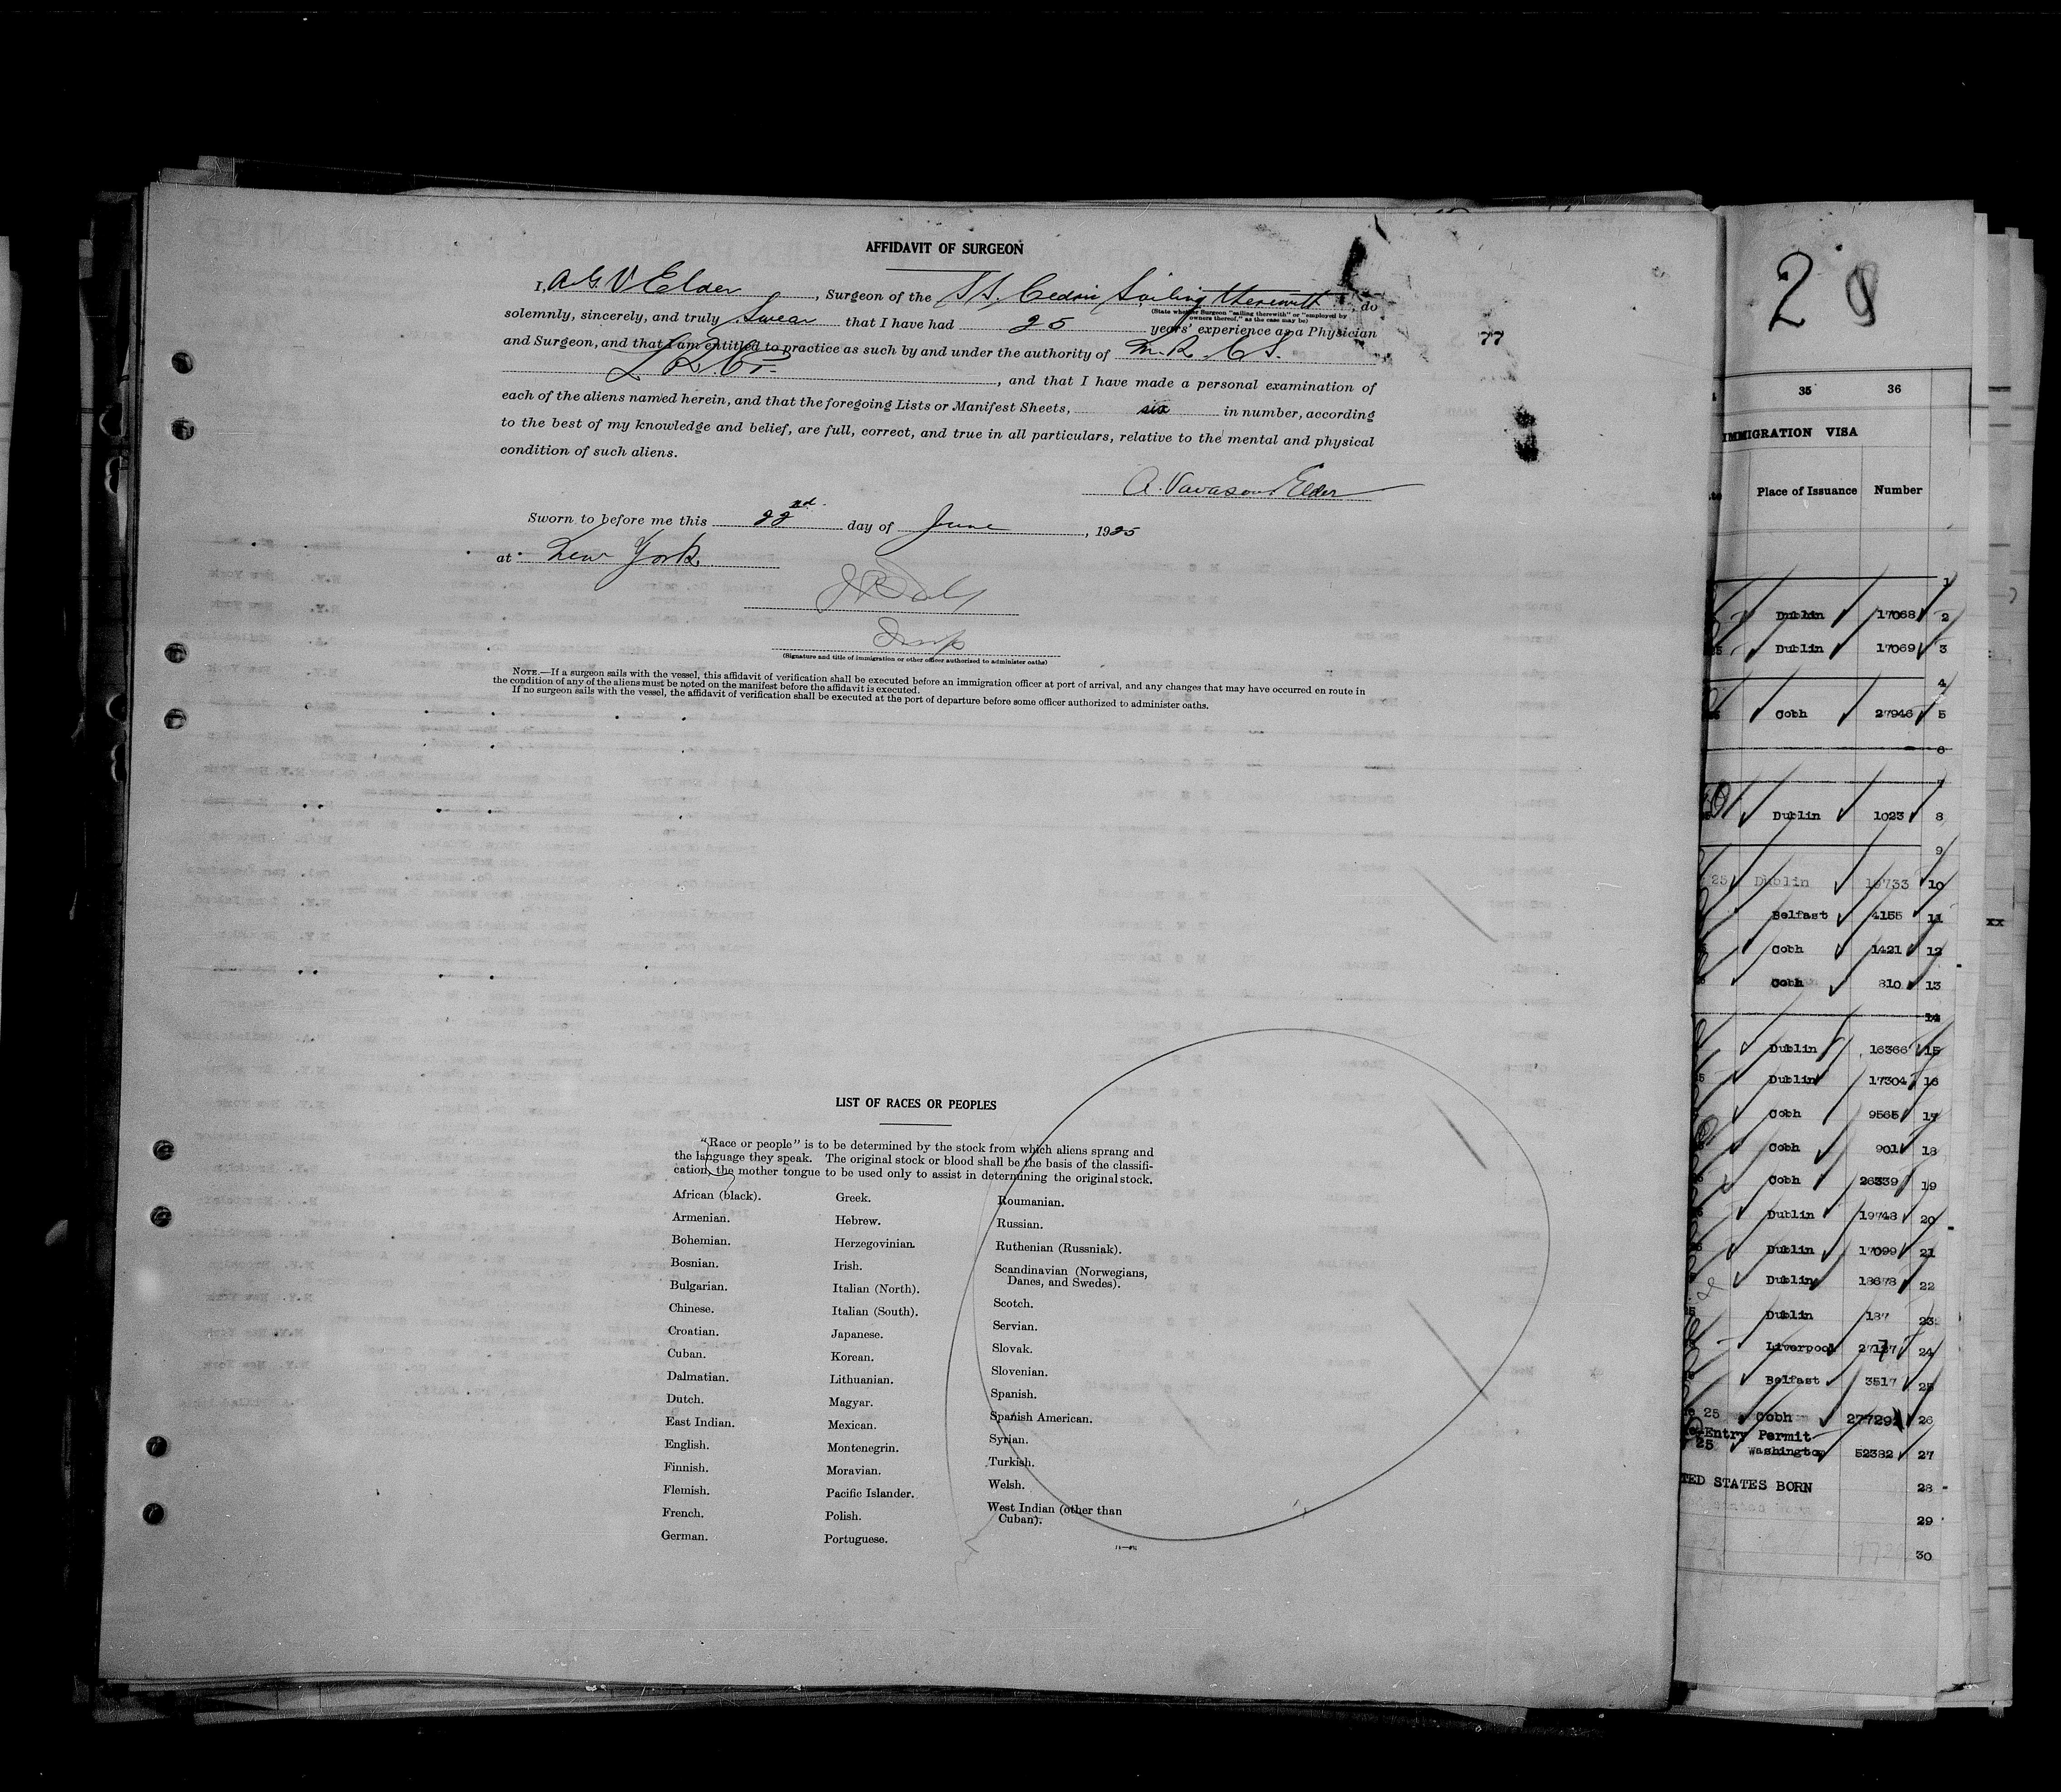 AFFIDAVIT OF SURGEON
I, A G V Elder, Surgeon of the SS. Cedric Sailing therewith, do
(State whether Surgeon "sailing therewith" or "employed by
owners thereof," as the case may be)
solemnly, sincerely, and truly Swear that I have had 25 years' experience as a Physician
and Surgeon, and that I am entitled to practice as such by and under the authority of M.R.C.S.
, and that I have made a personal examination of
each of the aliens named herein, and that the foregoing Lists or Manifest Sheets, six in number, according
to the best of my knowledge and belief, are full, correct, and true in all particulars, relative to the mental and physical
condition of such aliens.
A. Vavasour Elder
Sworn to before me this 22nd day of June, 1925
at New York
Insp
(Signature and title of immigration or other officer authorized to administer oaths)
NOTE.—If a surgeon sails with the vessel, this affidavit of verification shall be executed before an immigration officer at port of arrival, and any changes that may have occurred en route in
the condition of any of the aliens must be noted on the manifest before the affidavit is executed.
If no surgeon sails with the vessel, the affidavit of verification shall be executed at the port of departure before some officer authorized to administer oaths.
77
LIST OF RACES OR PEOPLES
"Race or people" is to be determined by the stock from which aliens sprang and
the language they speak. The original stock or blood shall be the basis of the classifi-
cation, the mother tongue to be used only to assist in determining the original stock.
African (black).
Armenian.
Bohemian.
Bosnian.
Bulgarian.
Chinese.
Croatian.
Cuban.
Dalmatian.
Dutch.
East Indian.
English.
Finnish.
Flemish.
French.
German.
Greek.
Hebrew.
Herzegovinian.
Irish.
Italian (North).
Italian (South).
Japanese.
Korean.
Lithuanian.
Magyar.
Mexican.
Montenegrin.
Moravian.
Pacific Islander.
Polish.
Portuguese.
Roumanian.
Russian.
Ruthenian (Russniak).
Scandinavian (Norwegians,
Danes, and Swedes).
Scotch.
Servian.
Slovak.
Slovenian.
Spanish.
Spanish American.
Syrian.
Turkish.
Welsh.
West Indian (other than
Cuban).
2
35 36
IMMIGRATION VISA
Place of Issuance Number
1
Dublin 17068 2
Dublin 17069 3
4
Cobh 27946 5
6
7
Dublin 1023 8
9
25 Dublin 10
Belfast 4155 11
Cobh 1421 12
Cobh 810 13
14
Dublin 16366 15
Dublin 17304 16
Cobh 9565 17
Cobh 901 18
Cobh 26339 19
Dublin 19748 20
Dublin 17099 21
Dublin 18678 22
Dublin 187 23
Liverpool 24
Belfast 3517 25
25 Cobh 27729 26
Entry Permit
25 Washington 52382 27
TED STATES BORN 28
29
30
xx